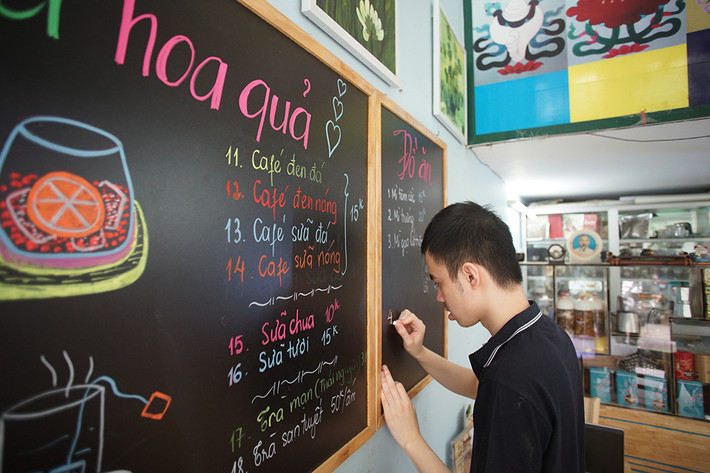 hoa quả
11. Café đen đá
12. Café đen nóng
13. Café sữa đá
14. Café sữa nóng
15K
15. Sữa chua 10K
16. Sữa tươi 15K
17. Trà mạn (Thái nguyên)
18. Trà san tuyết 50K/ấm
Đồ ăn
1. Mì tôm
2. Mì trứng
3. Mì
4